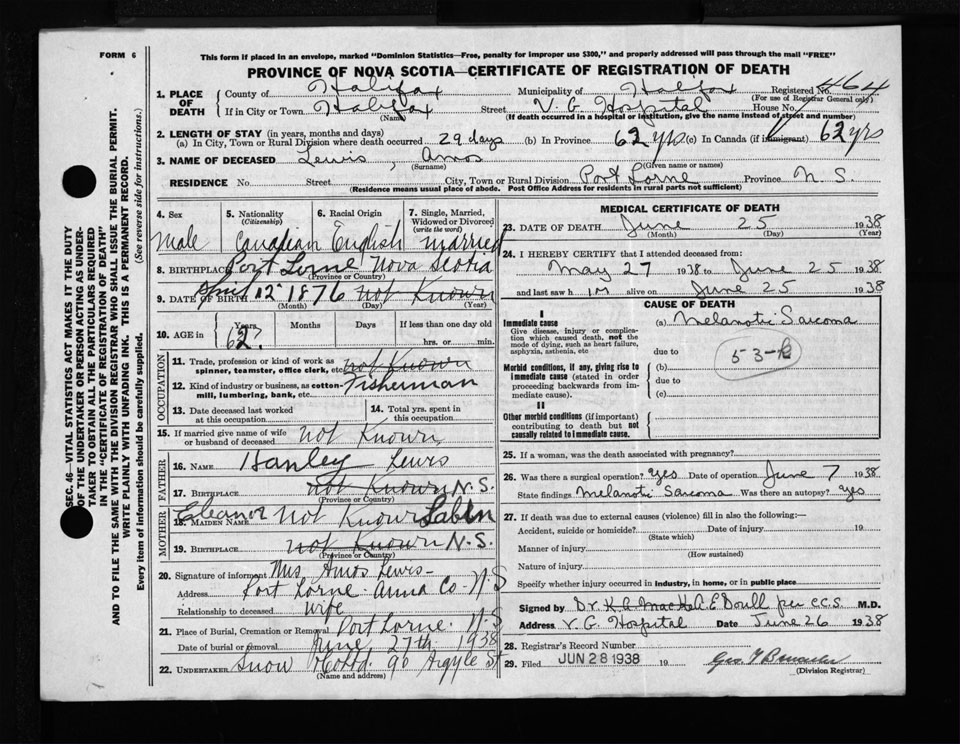 FORM 6
This form if placed in an envelope, marked "Dominion Statistics—Free, penalty for improper use $300," and properly addressed will pass through the mail "FREE"
PROVINCE OF NOVA SCOTIA—CERTIFICATE OF REGISTRATION OF DEATH
SEC. 46—VITAL STATISTICS ACT MAKES IT THE DUTY
OF THE UNDERTAKER OR PERSON ACTING AS UNDER-
TAKER TO OBTAIN ALL THE PARTICULARS REQUIRED
IN THE "CERTIFICATE OF REGISTRATION OF DEATH"
AND TO FILE THE SAME WITH THE DIVISION REGISTRAR WHO SHALL ISSUE THE BURIAL PERMIT.
WRITE PLAINLY WITH UNFADING INK. THIS IS A PERMANENT RECORD.
Every item of information should be carefully supplied. (See reverse side for instructions.)
1. PLACE OF DEATH County of Halifax Municipality of Halifax Registered No. 464
(For use of Registrar General only)
If in City or Town Halifax Street V. G. Hospital House No.
(Name) (If death occurred in a hospital or institution, give the name instead of street and number)
2. LENGTH OF STAY (in years, months and days)
(a) In City, Town or Rural Division where death occurred 29 days (b) In Province 62 yrs (c) In Canada (if immigrant) 62 yrs
3. NAME OF DECEASED Lewis, Amos
(Surname) (Given name or names)
RESIDENCE No. Street City, Town or Rural Division Port Lorne Province N. S.
(Residence means usual place of abode. Post Office Address for residents in rural parts not sufficient)
4. Sex 5. Nationality (Citizenship) 6. Racial Origin 7. Single, Married, Widowed or Divorced (write the word)
Male Canadian English married
8. BIRTHPLACE Port Lorne Nova Scotia
(Province or Country)
9. DATE OF BIRTH April 12" 1876 not Known
(Month) (Day) (Year)
10. AGE in Years Months Days If less than one day old
62? hrs. or min.
OCCUPATION
11. Trade, profession or kind of work as spinner, teamster, office clerk, etc. not Known
12. Kind of industry or business, as cotton-mill, lumbering, bank, etc. Fisherman
13. Date deceased last worked at this occupation 14. Total yrs. spent in this occupation
15. If married give name of wife or husband of deceased not Known
FATHER
16. NAME Hanley Lewis
17. BIRTHPLACE not Known N. S.
(Province or Country)
MOTHER
18. MAIDEN NAME Eleanor not Known
19. BIRTHPLACE not Known N. S.
(Province or Country)
20. Signature of informant Mrs Amos Lewis
Address Port Lorne Anna Co - N. S
Relationship to deceased wife
21. Place of Burial, Cremation or Removal Port Lorne. N. S
Date of burial or removal June 27th 1938
22. UNDERTAKER Snow 90 Argyle St
(Name and address)
MEDICAL CERTIFICATE OF DEATH
23. DATE OF DEATH June 25 1938
(Month) (Day) (Year)
24. I HEREBY CERTIFY that I attended deceased from:
May 27 1938 to June 25 1938
and last saw h im alive on June 25 1938
CAUSE OF DEATH
I
Immediate cause (a) Melanotic Sarcoma
Give disease, injury or complication which caused death, not the mode of dying, such as heart failure, asphyxia, asthenia, etc
due to
53-
Morbid conditions, if any, giving rise to immediate cause (stated in order proceeding backwards from immediate cause). (b)
due to
(c)
II
Other morbid conditions (if important) contributing to death but not causally related to immediate cause.
25. If a woman, was the death associated with pregnancy?
26. Was there a surgical operation? yes Date of operation June 7 1938
State findings Melanotic Sarcoma Was there an autopsy? yes
27. If death was due to external causes (violence) fill in also the following:—
Accident, suicide or homicide? Date of injury 19
(State which)
Manner of injury
(How sustained)
Nature of injury
Specify whether injury occurred in industry, in home, or in public place
Signed by Dr. K. A. E Doull per C.C.S. M.D.
Address V. G. Hospital Date June 26 1938
28. Registrar's Record Number
29. Filed JUN 28 1938 19
(Division Registrar)